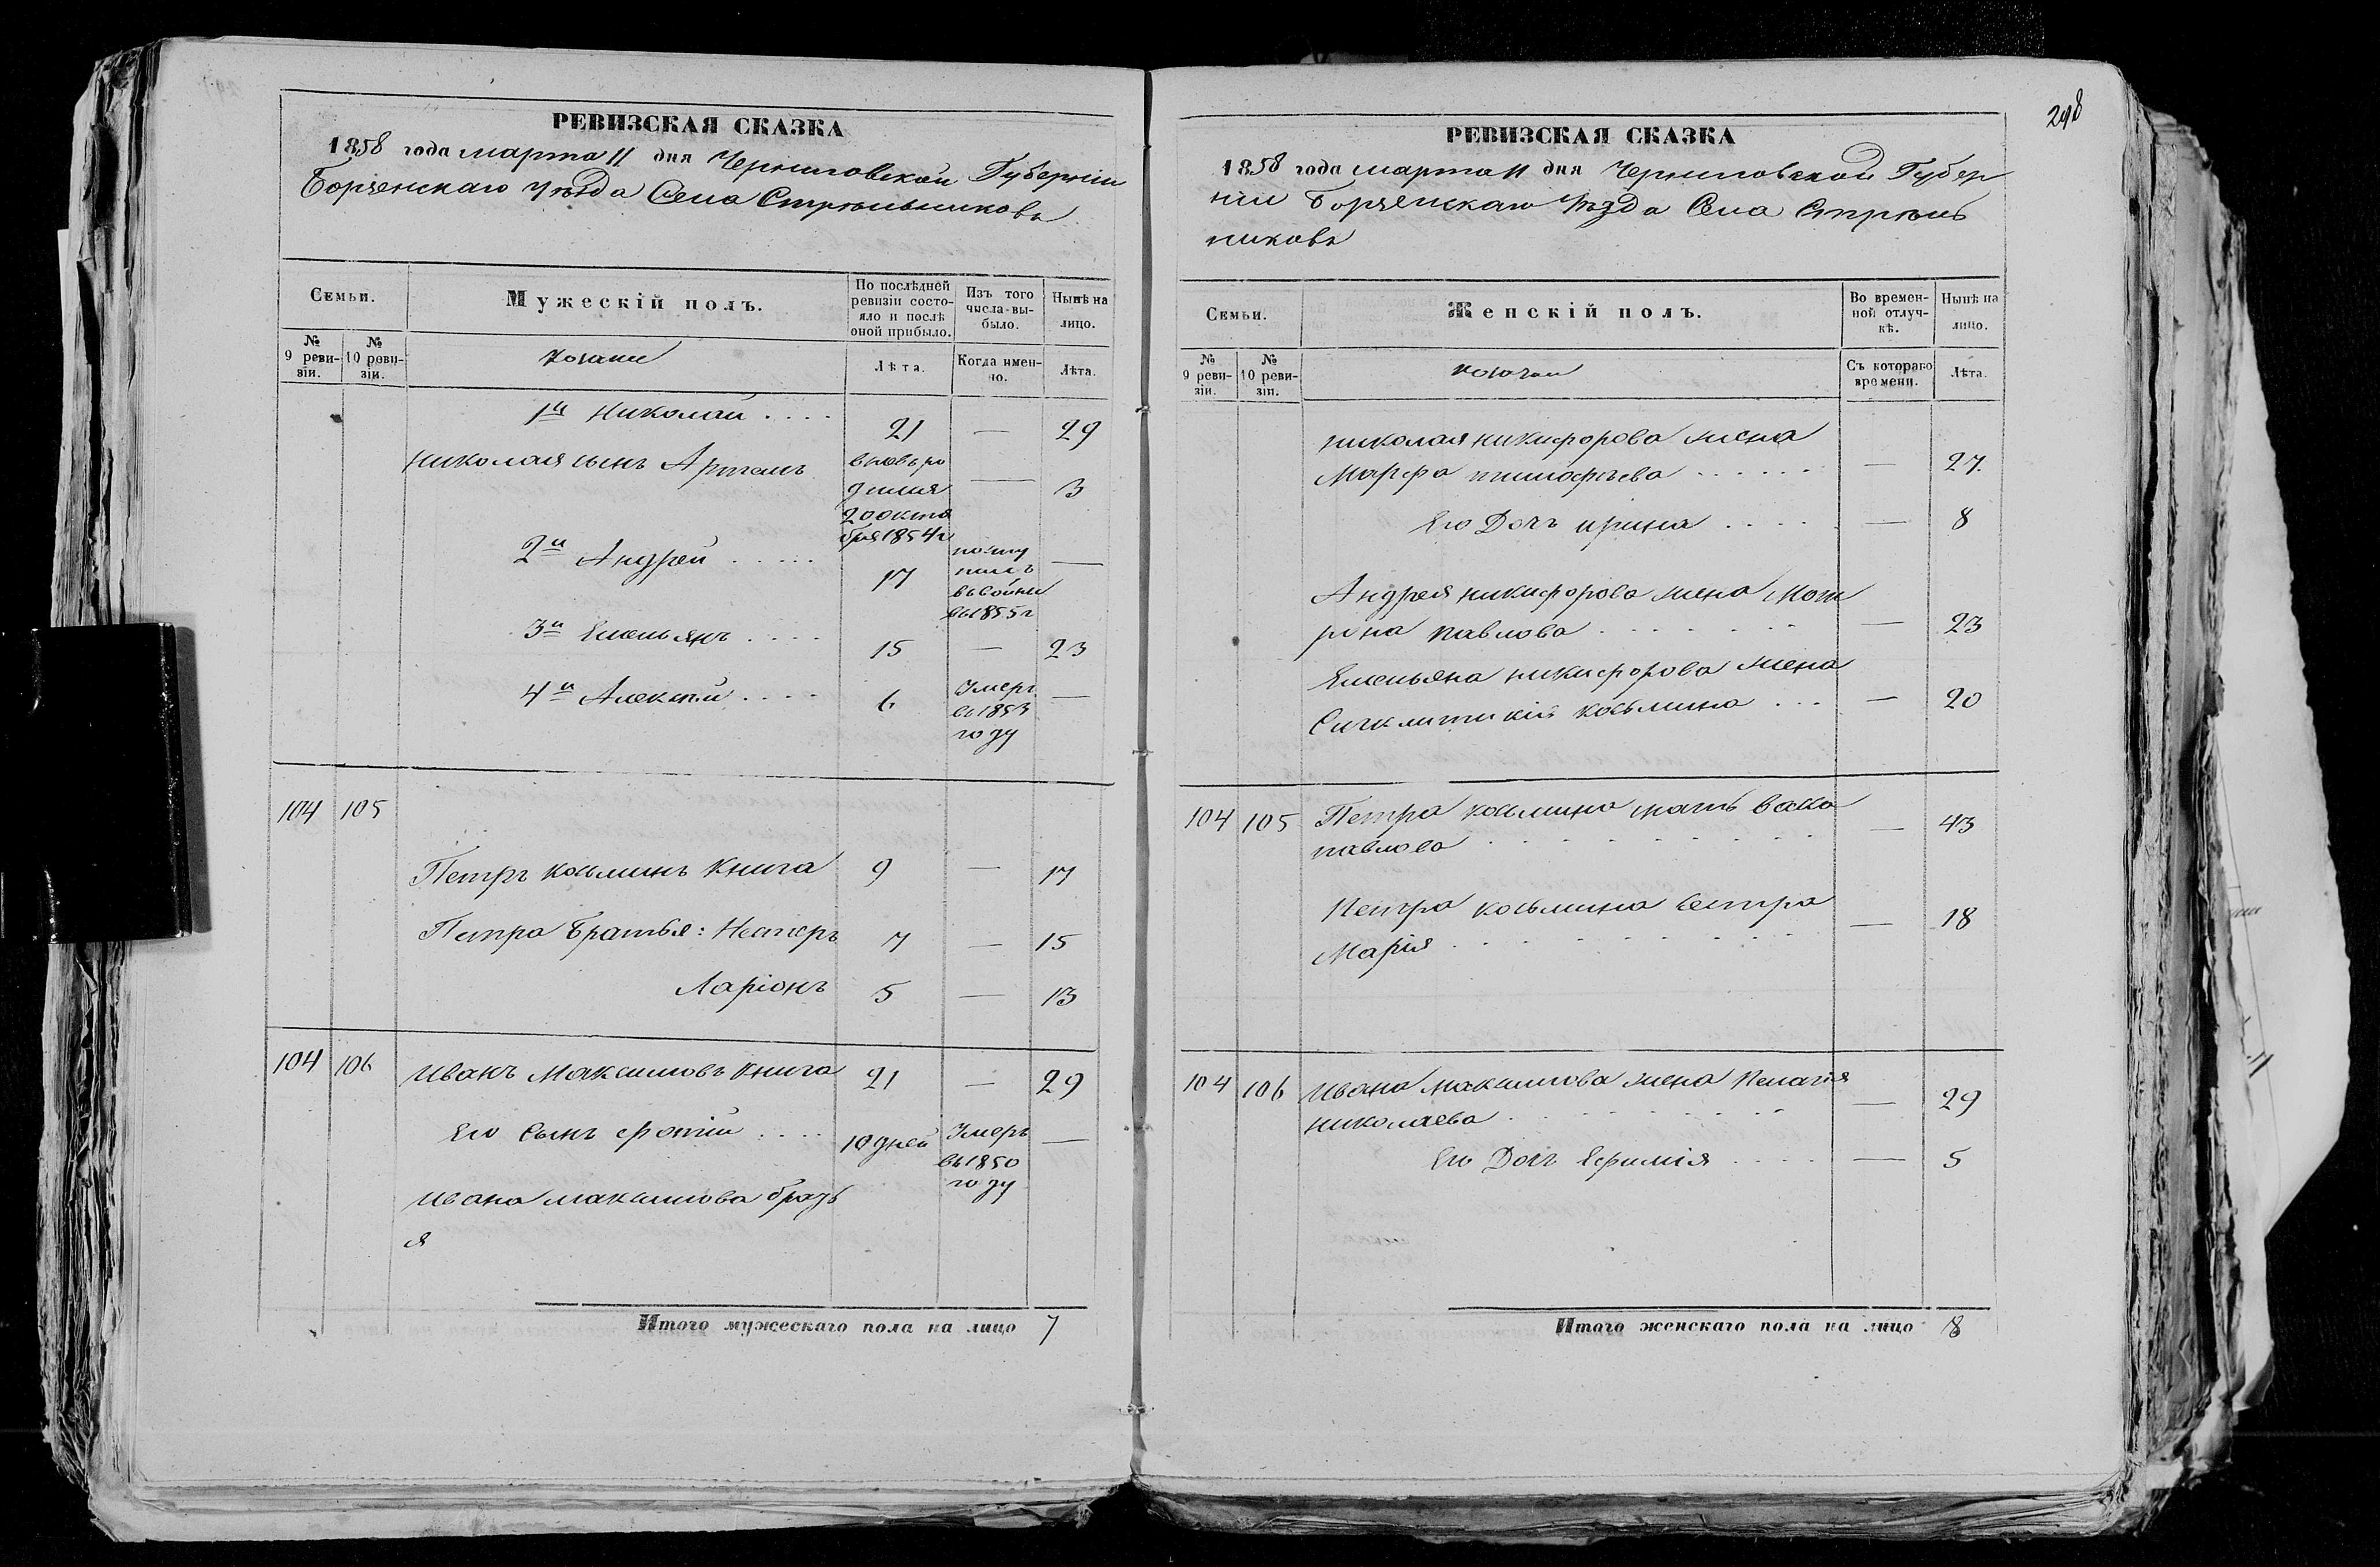 РЕВИЗСКАЯ СКАЗКА
1858 года марта 11 дня Черниговской Губерніи
Борзенскаго Уѣзда Села Стрѣльниковъ
Семьи.
Мужескій полъ.
По послѣдней ревизіи состояло и послѣ оной прибыло.
Изъ того числа выбыло.
Нынѣ на лицо.
№ 9 ревизіи.
№ 10 ревизіи.
козаки
Лѣта.
Когда именно.
Лѣта.
1й Николай . . . . 21 — 29
Николая сынъ Артемъ вновь ро — 3
20 октя
бря 1854 г
2й Андрей . . . . . 17 посту —
пилъ
въ 1855 г
3й Емельянъ . . . . 15 — 23
4й Алексѣй . . . . 6 Умеръ —
въ 1853
году
104 105
Петръ Козьминъ Книга 9 — 17
Петра Братья: Несторъ 7 — 15
Ларіонъ 5 — 13
104 106 Иванъ Максимовъ Книга 21 — 29
Его Сынъ Фотій . . . . 10 дней Умеръ —
въ 1850
году
Ивана Максимова брать
я
Итого мужескаго пола на лицо 7
298
РЕВИЗСКАЯ СКАЗКА
1858 года марта 11 дня Черниговской Губер
ніи Борзенскаго Уѣзда Села Стрѣль
никовъ
Семьи.
Женскій полъ.
Во временной отлучкѣ.
Нынѣ на лицо.
№ 9 ревизіи.
№ 10 ревизіи.
козачки
Съ котораго времени.
Лѣта.
Николая Никифорова жена
Марфа Тимофѣева . . . . . . — 27
Его Дочь Ирина . . . . . — 8
Андрея Никифорова жена Мот
рона Павлова . . . . . . . — 23
Емельяна Никифорова жена
Козьмина . . . — 20
104 105 Петра Козьмина мать Васса
Павлова . . . . . . . . . — 43
Петра Козьмина Сестра
Марія . . . . . . . . . . — 18
104 106 Ивана Максимова жена Пелагія
Николаева . . . . . . . . — 29
Его Дочь Ефимія . . . . — 5
Итого женскаго пола на лицо 8